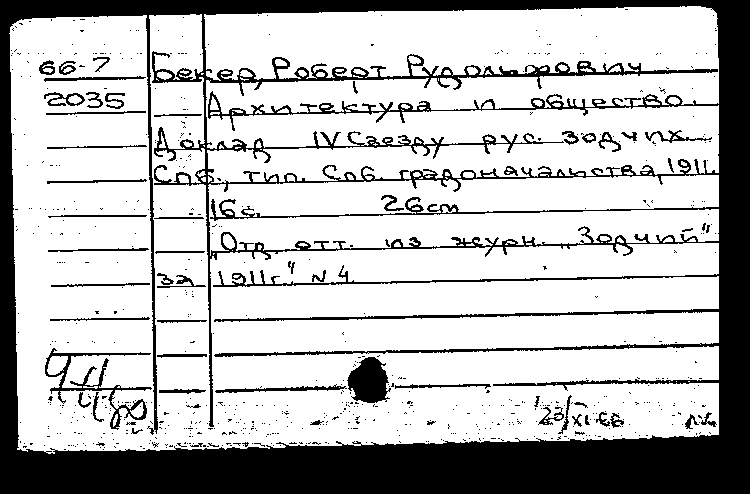 66-7 Бекер, Роберт Рудольфович
2035 Архитектура и общество.
Доклад IV Съезду рус. зодчих.
Спб., тип. Спб. градоначальства, 1911.
16 с. 26 cm
„Отд. отт. из журн. „Зодчий"
за 1911 г." N 4
23/XI-66